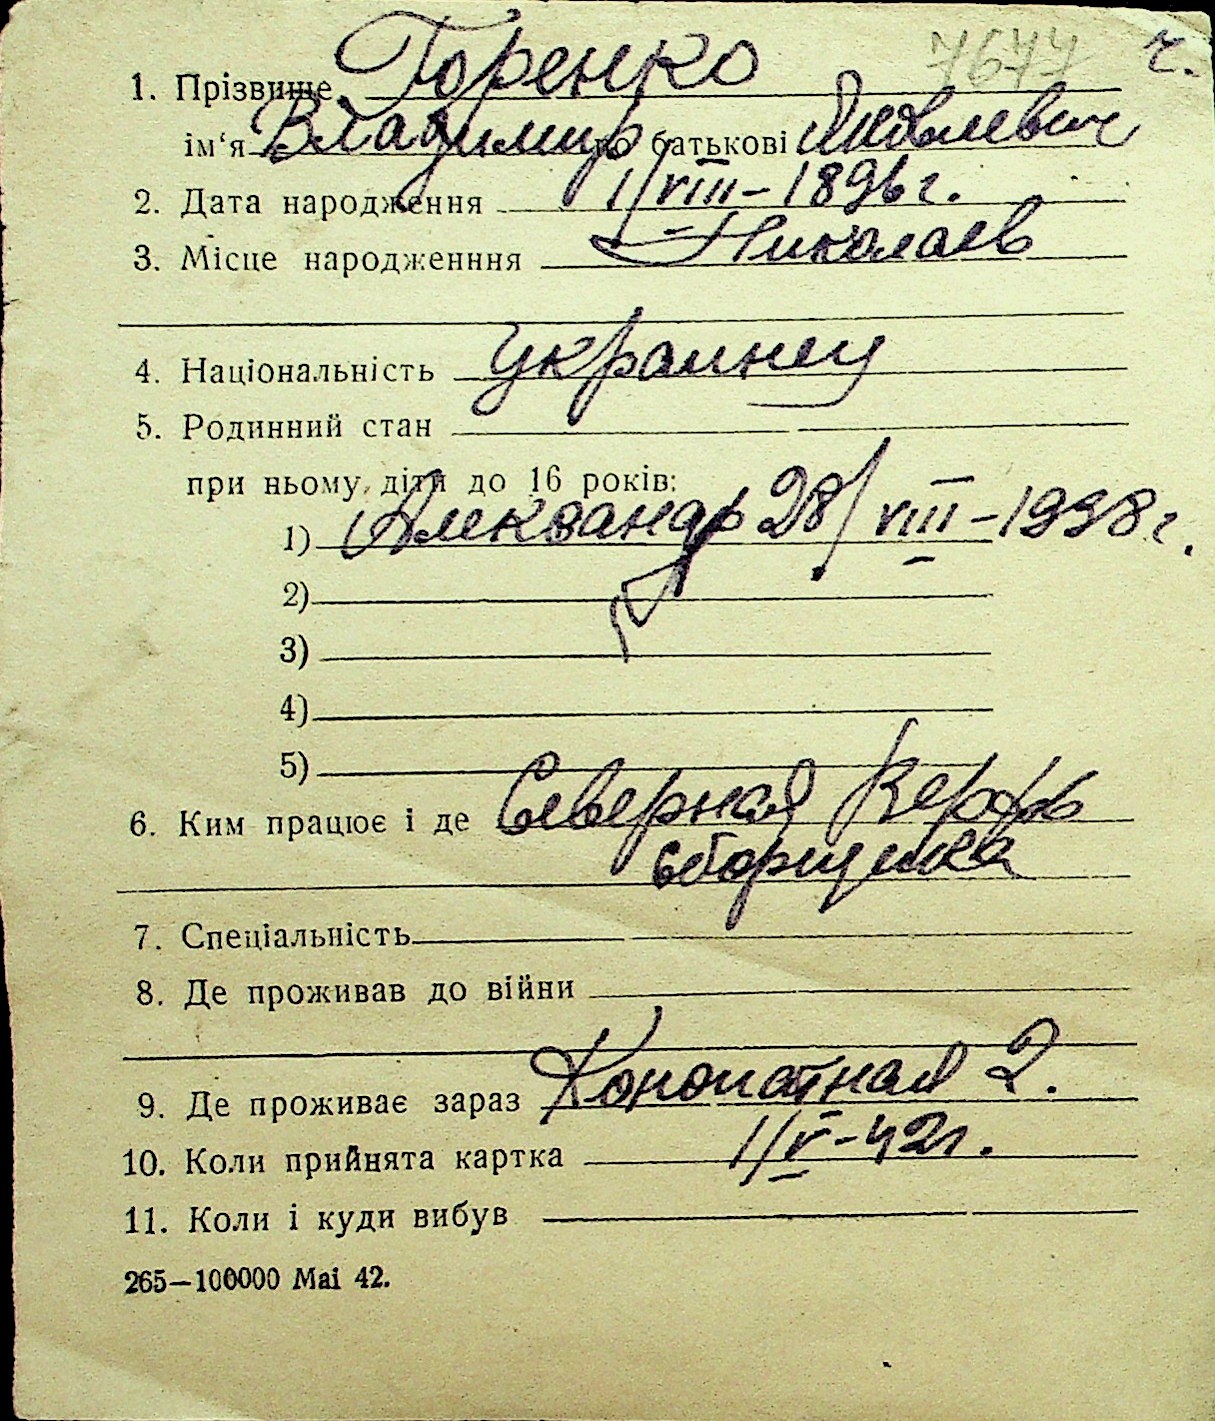 7677 ч.
1. Прізвище Горенко
ім‘я Владимир по батькові Яковлевич
2. Дата народження 1/VIII – 1896 г.
3. Місце народженння Николаев
4. Національність украинец
5. Родинний стан
при ньому діти до 16 років:
1) Александр 28/VIII – 1938 г.
2)
3)
4)
5)
6. Ким працює і де Северная Верфь
сборщика
7. Спеціальність
8. Де проживав до війни
9. Де проживає зараз Конопатная 2.
10. Коли прийнята картка 1/V – 42 г.
11. Коли і куди вибув
265—100000 Mai 42.